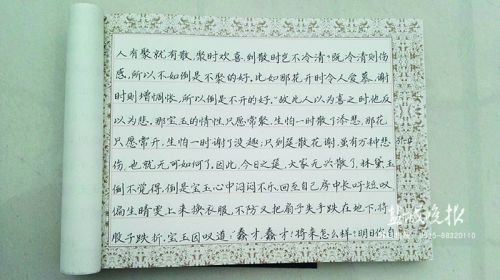 人有聚就有散,聚时欢喜,到散时岂不冷清?既冷清则伤
感,所以不如倒是不聚的好,比如那花开时令人爱慕,谢
时则增惆怅,所以倒是不开的好,"故此人以为喜之时他反
以为悲,那宝玉的情性只愿常聚,生怕一时散了添悲,那花
只愿常开,生怕一时谢了没趣;只到筵散花谢,虽有万种悲
伤,也就无可如何了,因此,今日之筵,大家无兴散了,林黛玉
倒不觉得,倒是宝玉,心中闷闷不乐,回至自己房中长吁短叹
偏生晴雯上来换衣服,不防又把扇子失手跌在地下,将
股子跌折,宝玉因叹道:"蠢才,蠢才!将来怎么样?明日你自
盐城晚报
0515-88320110